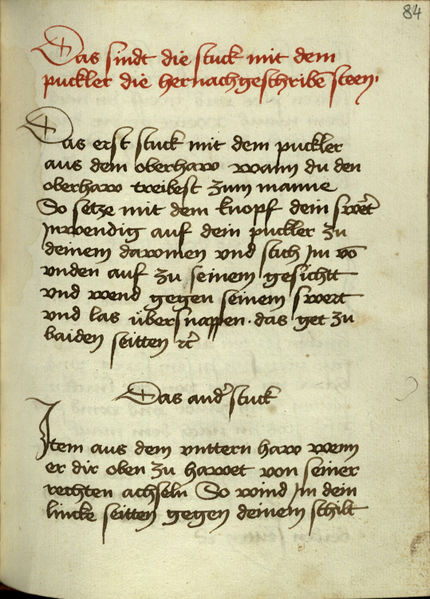 84
Das sindt die stuck mit dem
puckler die hernachgeschribē steen·
Das erst stuck mit dem puckler
aus dem oberhaw wann du den
oberhaw treibest zum manne
So setze mit dem knopf dein swe͠rt
Inwendig auf dein puckler zu
deinem dawmen vnd stich Im vō
vnden auf zu seinem gesichtt
vnd wend gegen seinem swert
vnd las übersnappen · das get zu
baiden seitten ꝛc̃
Das and̓ stuck
Item aus dem vnttern haw wenn
er dir oben zu hawet von seiner
rechten achseln So wind Im dein
lincke seitten gegen deinem schilt